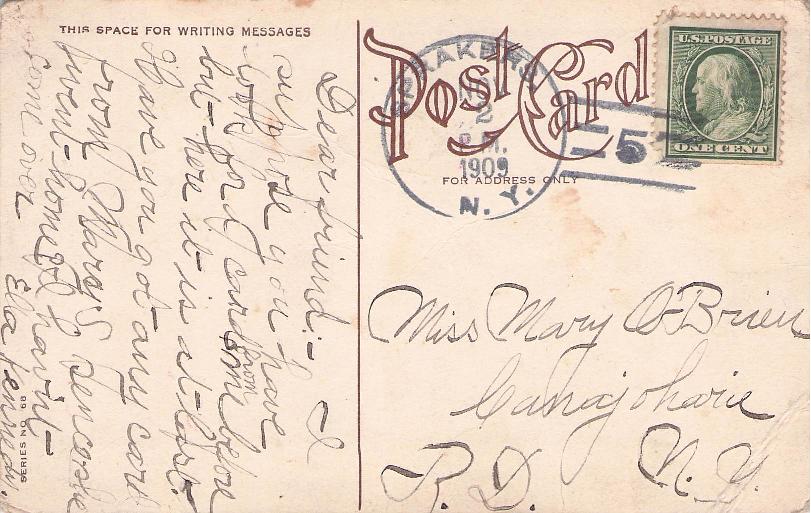 THIS SPACE FOR WRITING MESSAGES
Dear friend:- I
suppose you have
look for a card from me before
but- here it is at last-
Have you got any card
from Mary S sence she
went- home I havint-
Come over.
Ella Kennedy.
SERIES NO. 68
Post Card
FOR ADDRESS ONLY
SPRAKERS
2
P.M.
1909
N.Y.
5
U.S. POSTAGE
ONE CENT
Miss Mary O'Brien
Canajoharie
R.D. N.Y.